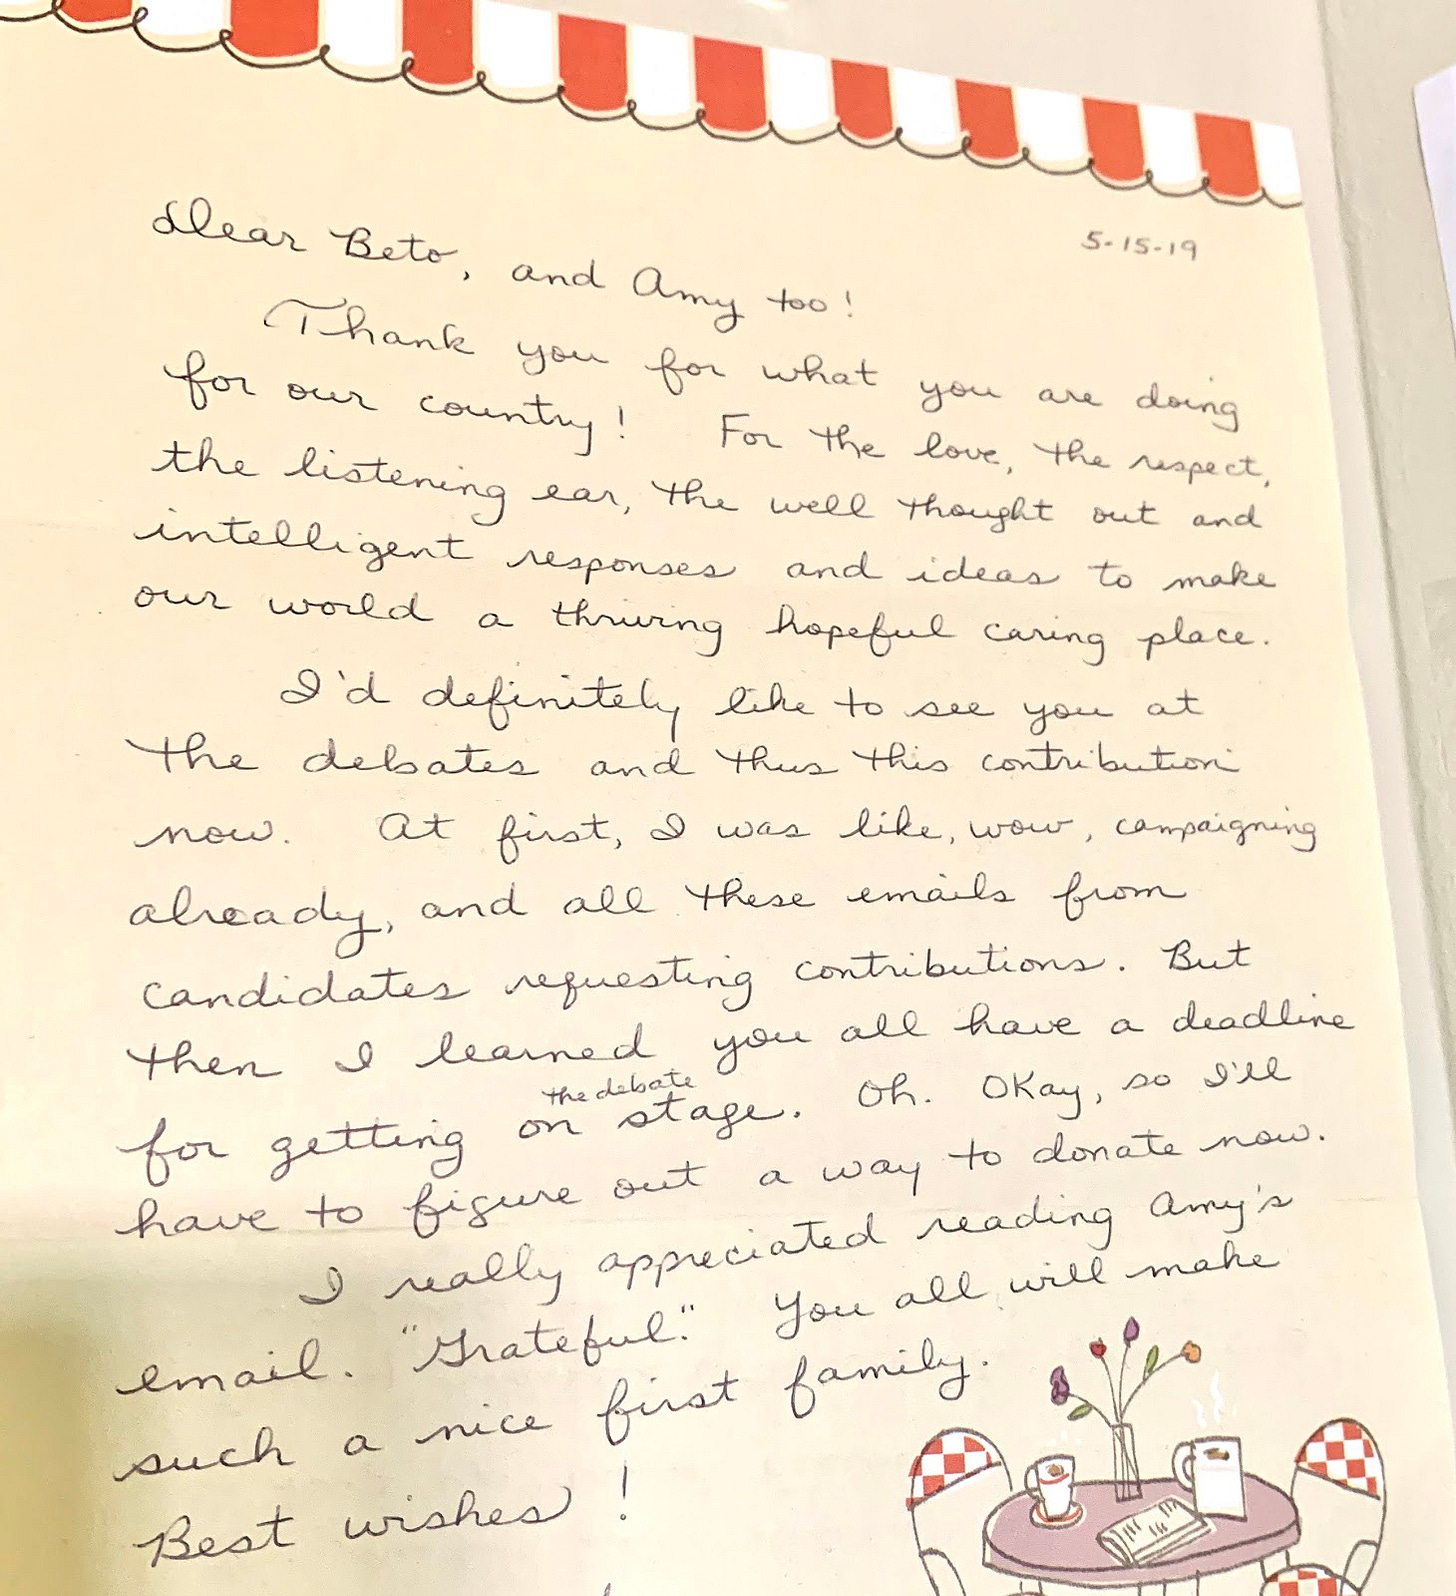 5-15-19
Dear Beto, and Amy too!
Thank you for what you are doing
for our country! For the love, the respect,
the listening ear, the well thought out and
intelligent responses and ideas to make
our world a thriving hopeful caring place.
I'd definitely like to see you at
the debates and thus this contribution
now. At first, I was like, wow, campaigning
already, and all these emails from
candidates requesting contributions. But
then I learned you all have a deadline
for getting on the debate stage. Oh. Okay, so I'll
have to figure out a way to donate now.
I really appreciated reading Amy's
email. "Grateful." You all will make
such a nice first family.
Best wishes!